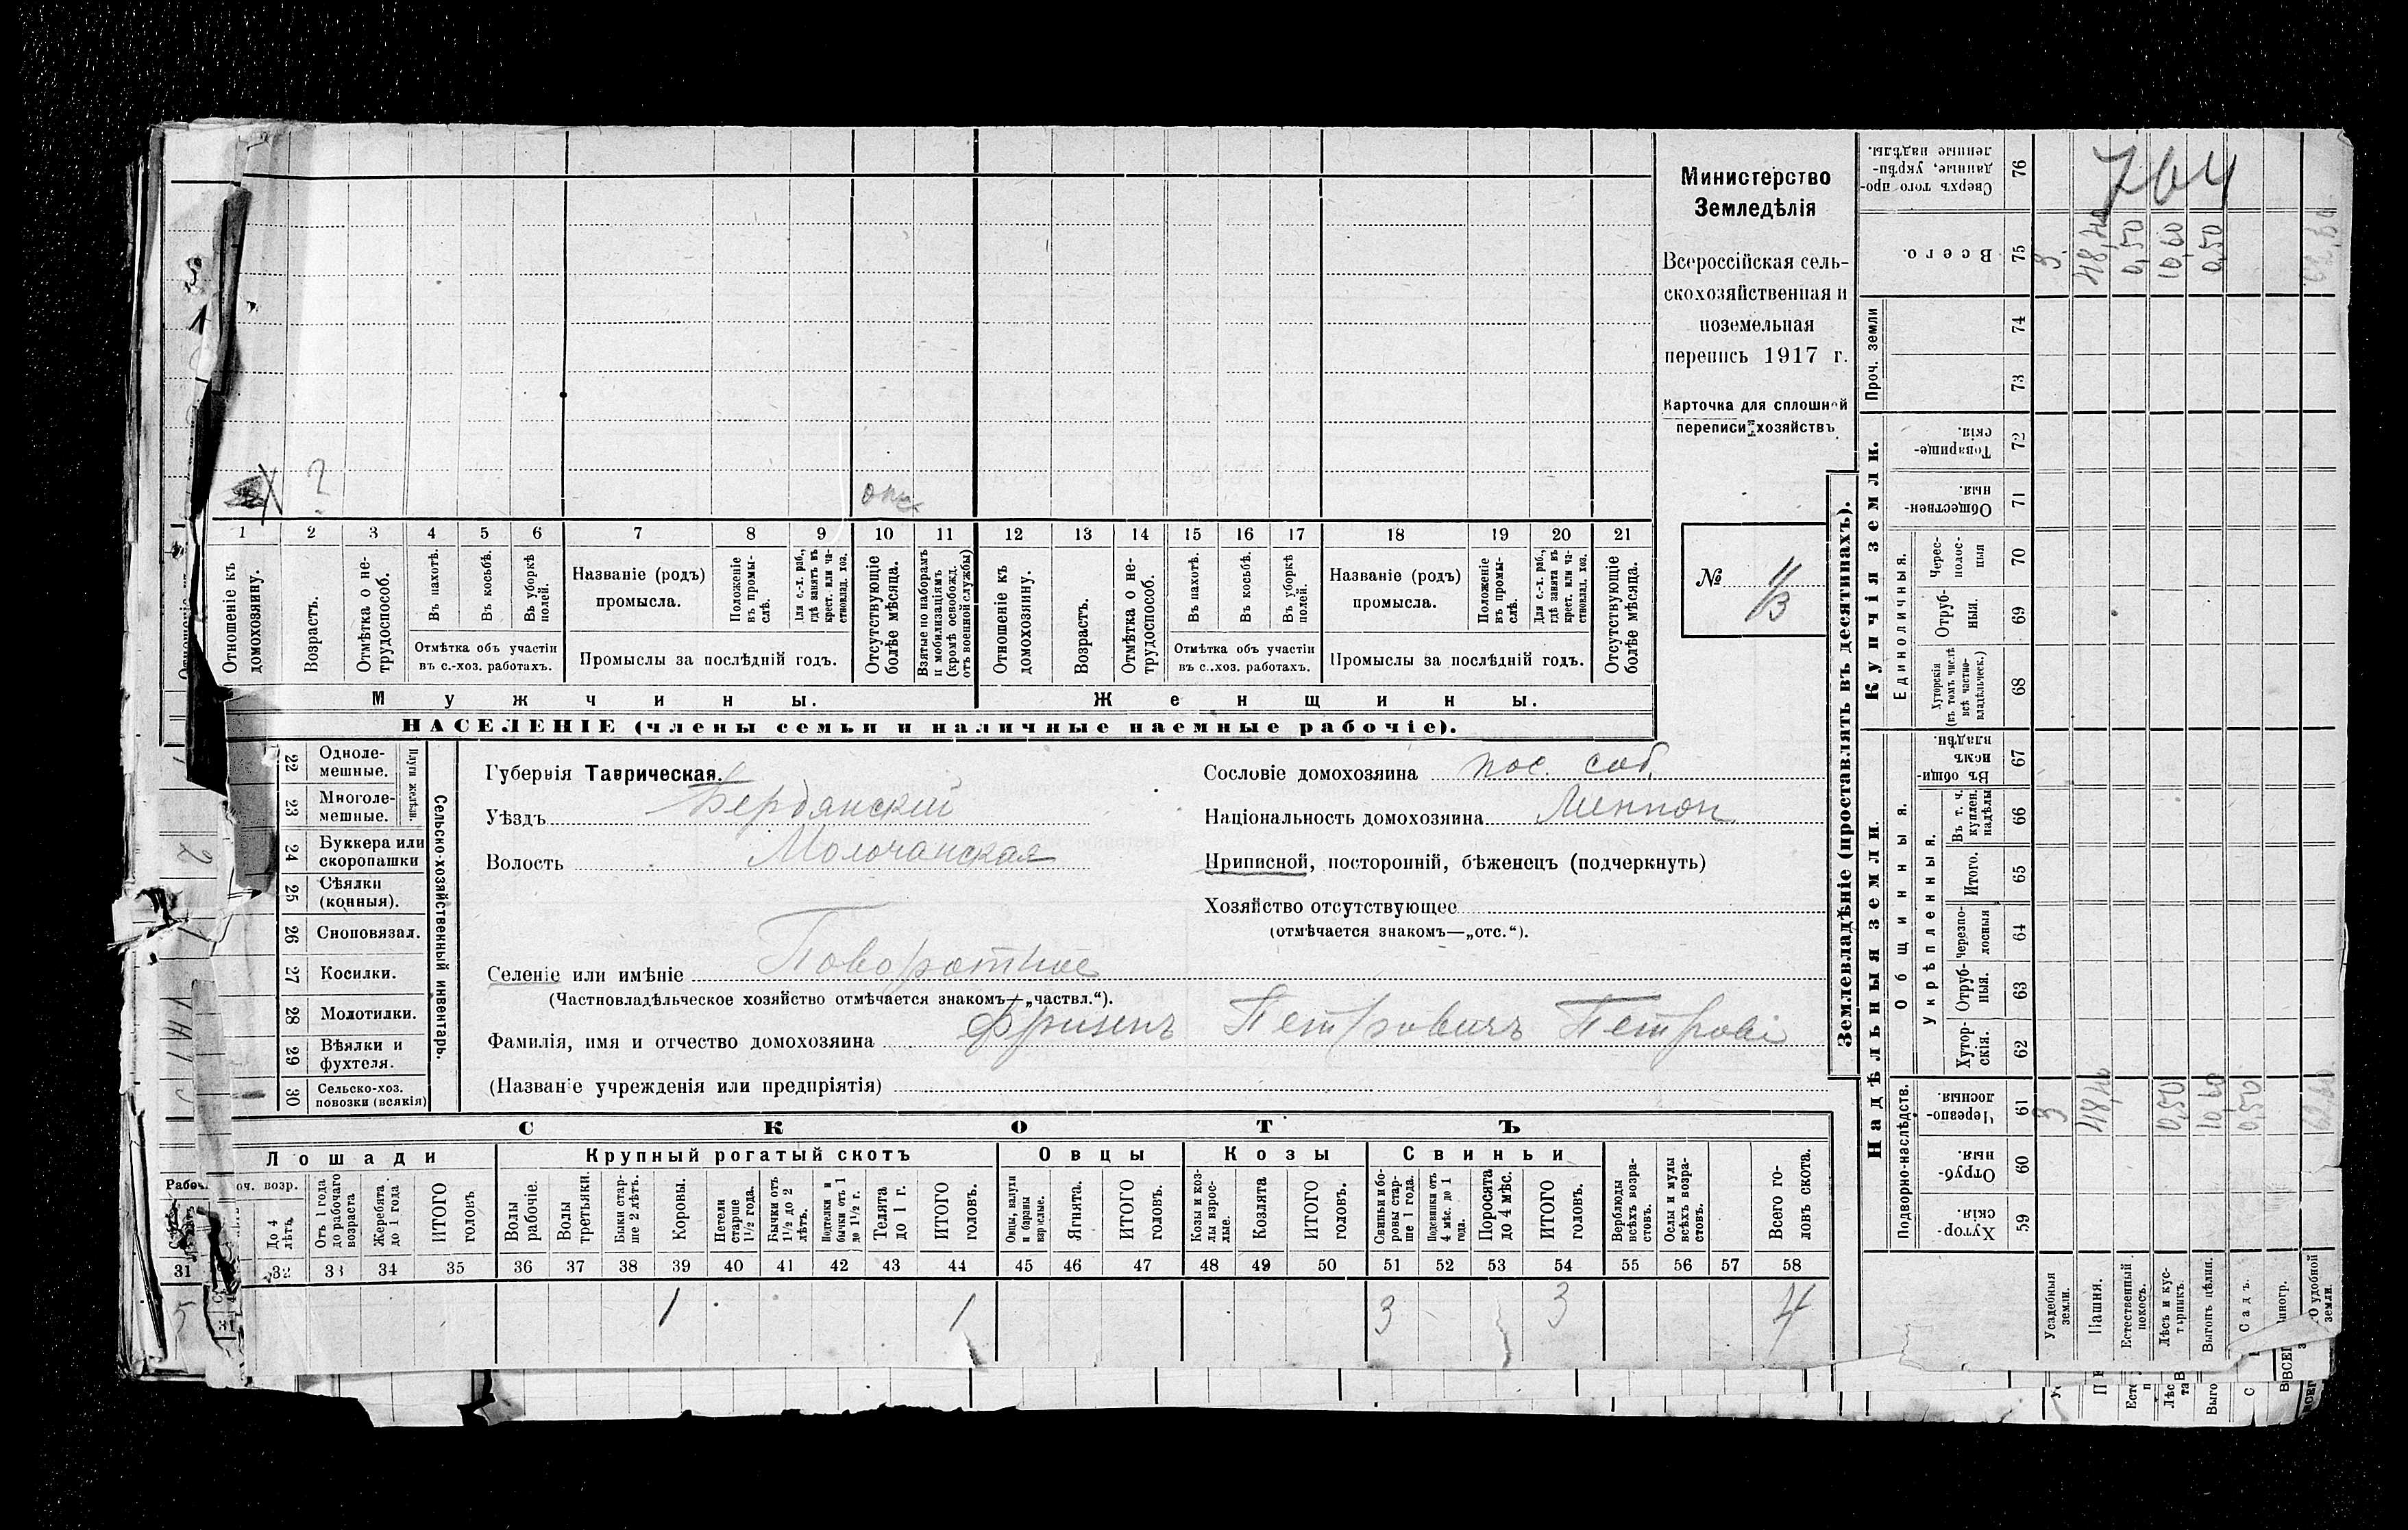 Министерство
Земледѣлія
Всероссійская сель-
скохозяйственная и
поземельная
перепись 1917 г.
Карточка для сплошной
переписи хозяйствъ
764
№
?
1 2 3 4 5 6 7 8 9 10 11 12 13 14 15 16 17 18 19 20 21
Отношеніе къ домохозяину.
Возрастъ.
Отмѣтка о не-трудоспособ.
Въ пахотѣ.
Въ косьбѣ.
Въ уборкѣ полей.
Отмѣтка объ участіи
въ с.-хоз. работахъ.
Названіе (родъ)
промысла.
Положеніе въ промы-слѣ.
Для с.-х. раб., гдѣ занятъ въ крест. или ча-стновлад. хоз.
Промыслы за послѣдній годъ.
Отсутствующіе болѣе мѣсяца.
Взятые по наборамъ и мобилизаціямъ (кромѣ освобожд. отъ военной службы)
Отношеніе къ домохозяину.
Возрастъ.
Отмѣтка о не-трудоспособ.
Въ пахотѣ.
Въ косьбѣ.
Въ уборкѣ полей.
Отмѣтка объ участіи
въ с.-хоз. работахъ.
Названіе (родъ)
промысла.
Положеніе въ промы-слѣ.
Для с.-х. раб., гдѣ занята въ крест. или ча-стновлад. хоз.
Промыслы за послѣдній годъ.
Отсутствующіе болѣе мѣсяца.
Мужчины. Женщины.
НАСЕЛЕНІЕ (члены семьи и наличные наемные рабочіе).
22 Одноле-мешные.
23 Многоле-мешные.
Плуги желѣзн.
24 Буккера или скоропашки
25 Сѣялки (конныя).
26 Сноповязал.
27 Косилки.
28 Молотилки.
29 Вѣялки и фухтеля.
30 Сельско-хоз. повозки (всякія)
Сельско-хозяйственный инвентарь.
Губернія Таврическая.
Уѣздъ Бердянскій
Волость Молочанская
Селеніе или имѣніе Поворотное
(Частновладѣльческое хозяйство отмѣчается знакомъ—„частвл.“).
Фамилія, имя и отчество домохозяина Фризенъ Петровичъ
(Названіе учрежденія или предпріятія)
Сословіе домохозяина пос. соб.
Національность домохозяина Меннон
Приписной, посторонній, бѣженецъ (подчеркнуть)
Хозяйство отсутствующее
(отмѣчается знакомъ—„отс.“).
СКОТЪ
Лошади Крупный рогатый скотъ Овцы Козы Свиньи
До 4 лѣтъ.
Отъ 1 года до рабочаго возраста
Жеребята до 1 года
ИТОГО головъ
Волы рабочіе.
Волы третьяки.
Быки стар-ше 2 лѣтъ.
Коровы.
Нетели старше 1½ года.
Бычки отъ 1½ до 2 лѣтъ.
Подтелки и бычки отъ 1 до 1½ г.
Телята до 1 г.
ИТОГО головъ.
Овцы, валухи и бараны взрослые.
Ягнята.
ИТОГО головъ.
Козы и коз-лы взрос-лые.
Козлята
ИТОГО головъ.
Свиньи и бо-ровы стар-ше 1 года.
Подсвинки отъ 4 мѣс. до 1 года.
Поросята до 4 мѣс.
ИТОГО головъ.
Верблюды всѣхъ возра-стовъ.
Ослы и мулы всѣхъ возра-стовъ.
Всего го-ловъ скота.
31 32 33 34 35 36 37 38 39 40 41 42 43 44 45 46 47 48 49 50 51 52 53 54 55 56 57 58
1 1 3 3 4
Землевладѣніе (проставлять въ десятинахъ).
Надѣльныя земли. Купчія земли.
Подворно-наслѣдств.
Общинныя.
Укрѣпленныя.
Единоличныя.
Проч. земли
59 Хутор-скія.
60 Отруб-ныя.
61 Черезпо-лосныя.
62 Хутор-скія.
63 Отруб-ныя.
64 Черезпо-лосныя
65 Итого.
66 Въ т. ч. куплен. надѣлы
67 Въ общи-нномъ владѣн.
68 Хуторскія (въ томъ числѣ всѣ частно-владѣльческ.)
69 Отруб-ныя.
70 Черес-полос-ныя
71 Обществен-ныя.
72 Товарище-скія.
73
74
75 Всего.
76 Сверхъ того про-данные, укрѣп-ленные надѣлы.
Усадебныя земли.
Пашня.
Естественный покосъ.
Лѣсъ и кус-тарникъ.
Выгонъ цѣлин.
Садъ.
3 48,40 0,50 10,60 0,50
3 48,40 0,50 10 60 0,50 62,60